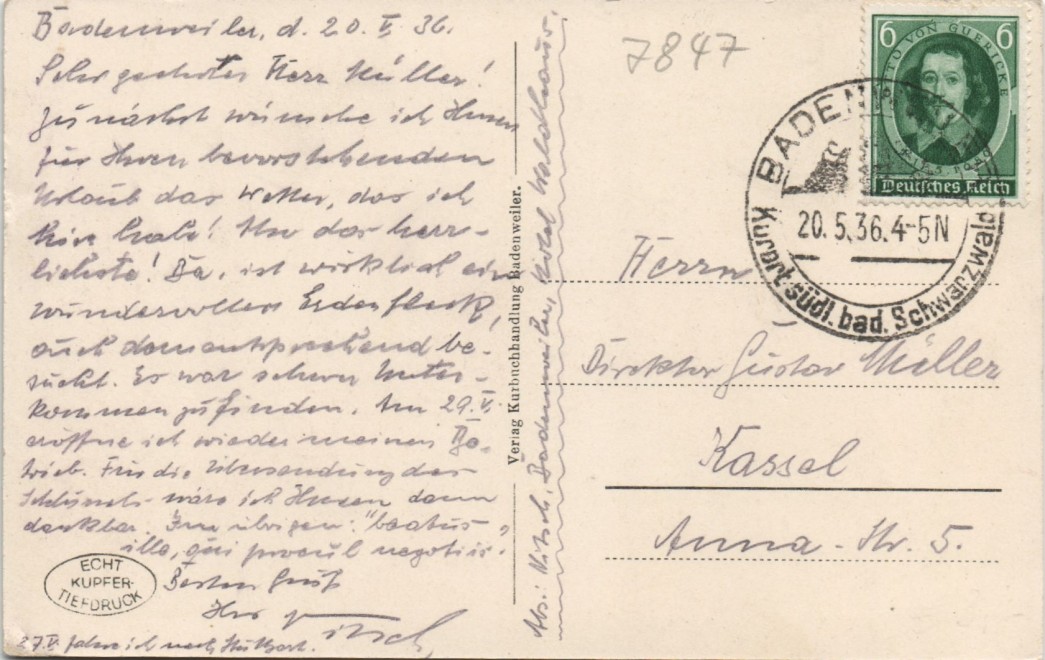 Badenweiler, d. 20. V. 36.
Sehr geehrter Herr Müller!
Zunächst wünsche ich Ihnen
für Ihren bevorstehenden
Urlaub das Wetter, das ich
hier habe! Nur das herr-
lichste! Ba. ist wirklich ein
wundervoller Erdenfleck,
auch dementsprechend be-
sucht. Es war schwer Unter-
kommen zu finden. Am 29. V.
eröffne ich wieder meinen Be-
trieb. Für die Übersendung des
wäre ich Ihnen dann
dankbar. Im übrigen: "beatus
ille, qui procul negotiis."
Besten Gruß
Ihr
27. V. fahre ich nach Stuttgart.
ECHT
KUPFER-
TIEFDRUCK
Verlag Kurbuchhandlung Badenweiler.
Abs.: Nitsch, Badenweiler, Hotel Waldhaus.
7847
6 OTTO VON GUERICKE 6
Deutsches Reich
BADENWEILER
20.5.36.4-5N
Kurort südl. bad. Schwarzwald
Herrn
Direktor Gustav Müller
Kassel
Anna-Str. 5.